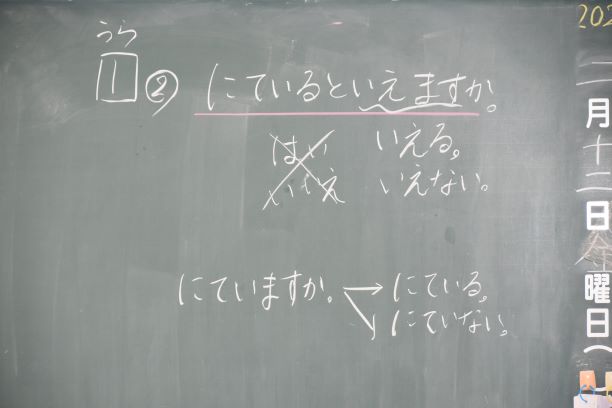 うら
1 ② にているといえますか。
はい いえる。
いいえ いえない。
にていますか。 → にている。
にていない。
202
二月十二日金曜日(